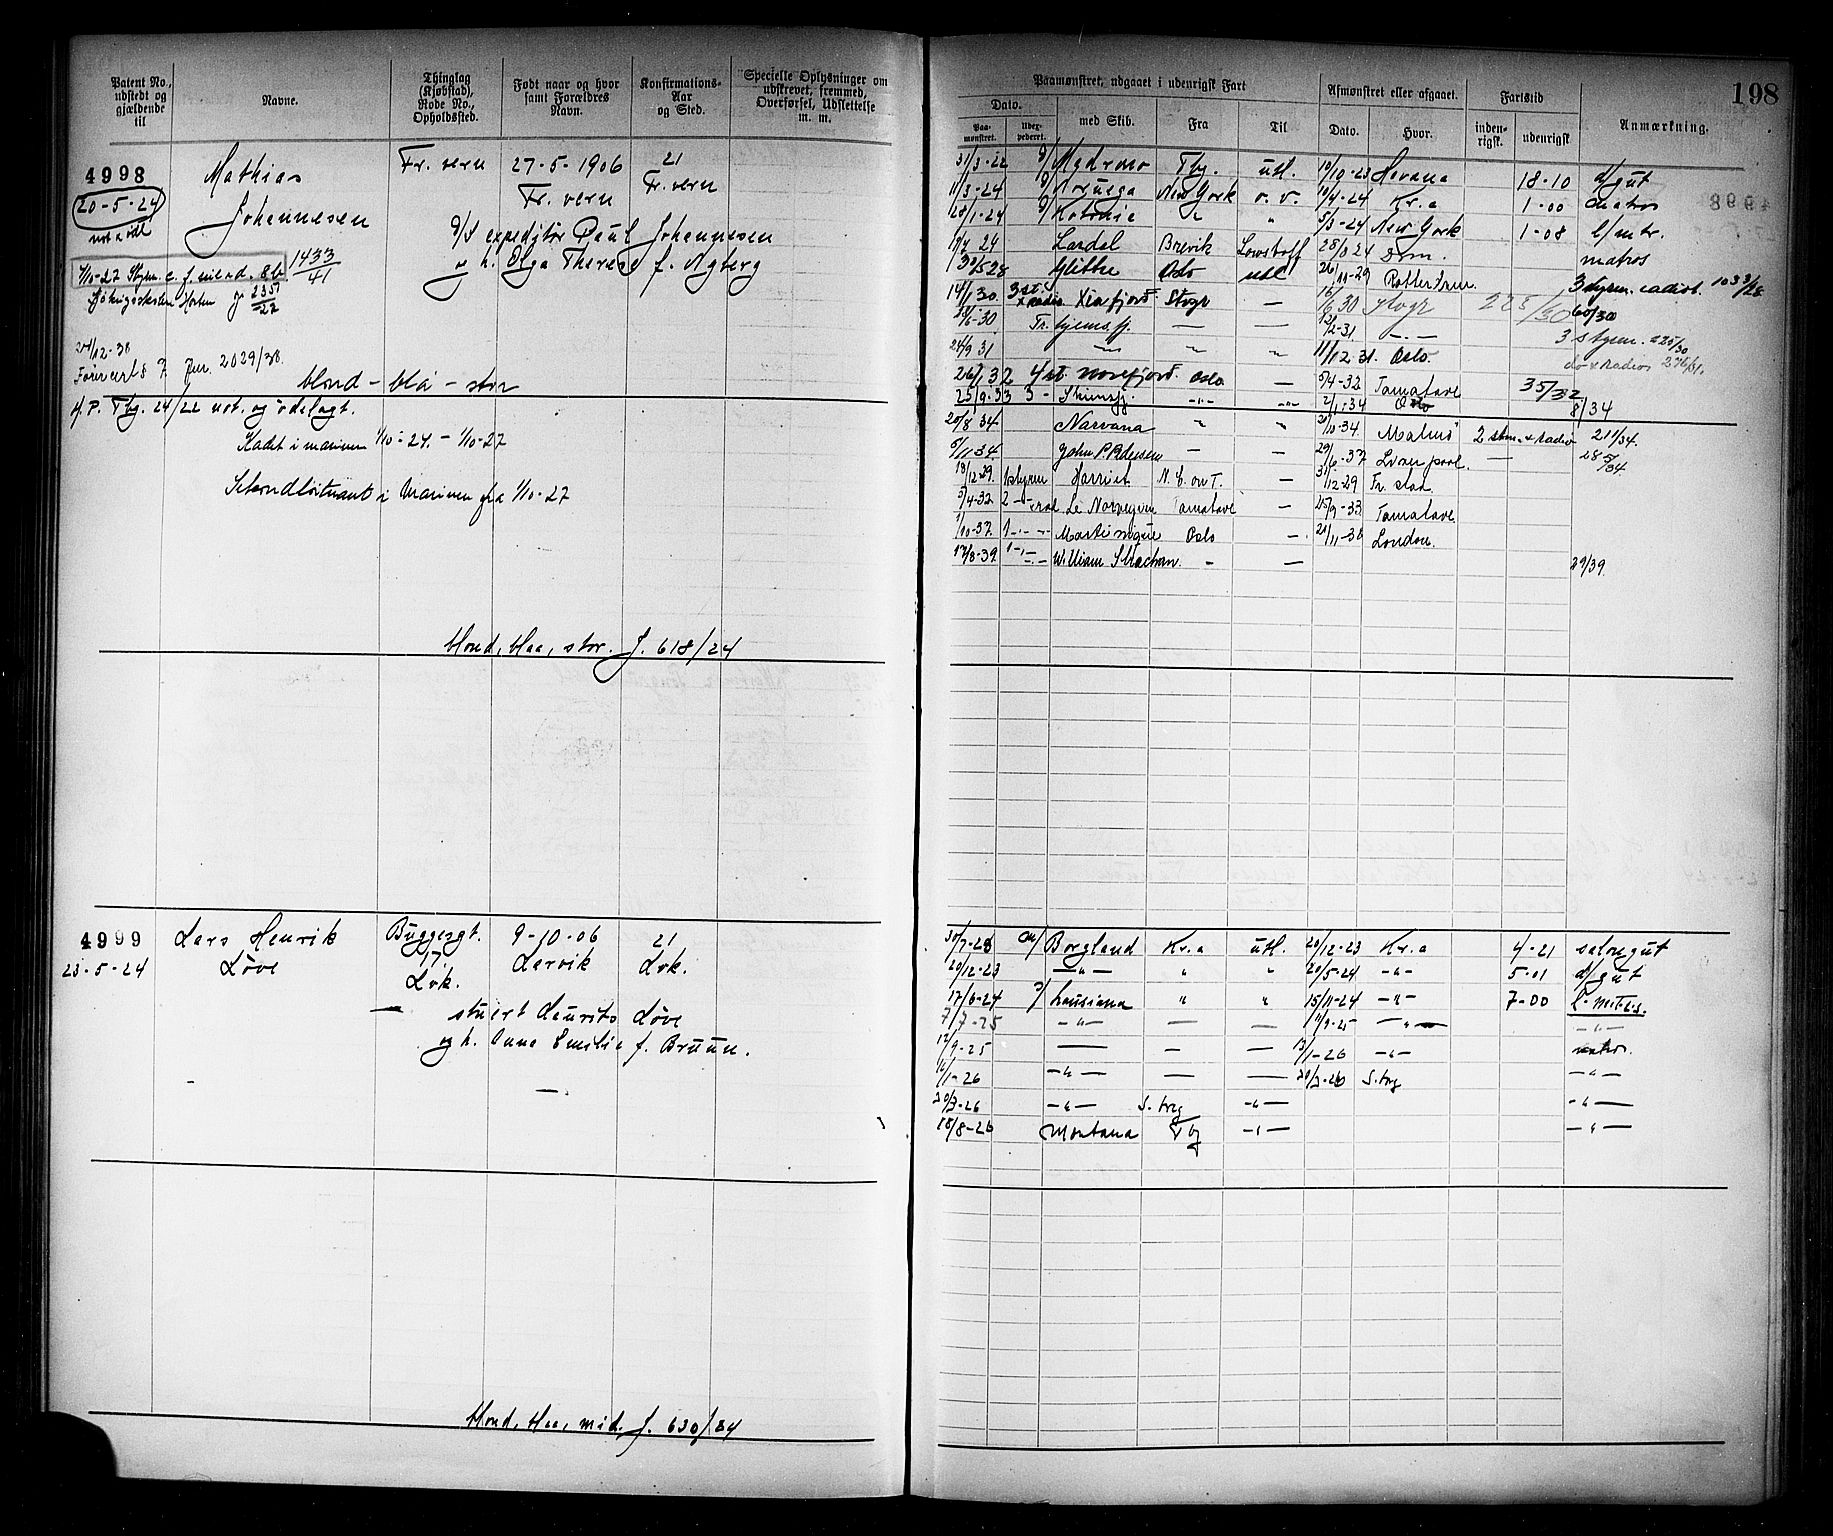 Patent No., udstedt og gjældende til
Navne.
Thinglag (Kjøbstad), Rode No., Opholdssted.
Født naar og hvor samt Forældres Navn.
Konfirmations- Aar og Sted.
Specielle Oplysninger om udskrevet, fremmed, Overførsel, Udslettelse m. m.
4998
20-5-24
Mathias
Johannesen
Fr. vern
27-5-1906
Fr. vern
21
Fr. vern
S/S expeditør Paul Johannesen
og h. Olga Therese f. Nyberg
1433/41
2357/27
24/12-38
Jnr. 2029/38.
blond - blå - stor
Tbg. 24/22 not. og ødelagt.
Kadet i marinen 1/10-24. - 1/10-27
Sekondløitnant i Marinen fra 1/10-27
blond, blaa, stor. J. 618/24
4999
23-5-24
Lars Henrik
Løve
Buggesgt.
17
Lvk.
9-10-06
Larvik
21
Lvk.
— stuert Laurits Løve
og h. Anna Emilie f. Bruun.
—.
blond, blaa, mid. J. 630/24
198
Paamønstret, udgaaet i udenrigsk Fart
Afmønstret eller afgaaet.
Fartstid
Anmærkning.
Dato.
Paa- mønstret.
Udex- pederet.
med Skib.
Fra
Til
Dato.
Hvor.
inden- rigsk.
udenrigsk
31/3-22 Madrono Tbg. utl. 19/10-23 Havana 18-10 d/gut
11/3-24 Noruega New York o. v. 19/4-24 Kr.a 1-00 matros
28/1-24 " 5/3-24 New York 1-08 l/mtr.
24 Lardal Brevik Lowstoff 28/10 24 Drm. matros
28 Glittre Oslo utl 26/11-29 Rotterdam 3 styrm. radiot. 1033/28
14/1 30. 3 st. x radio Kinafjord Stvgr — 30 Stvgr 225/30 60/30
6-30 Tr. hjemsfj. — — 2-31 — 3 styrm. 225/30
24/9 31 — " — " 11/12 31. Oslo. do x Radio 276/31.
26/1 32 4 st. Norefjord. Oslo — 5/4-32 Tamatave 35/32
25/9-33 3 - —"— —"— 34 Oslo 8/34
20/8 34 Narvana " " 30/10-34 Malmö 2 stm. x Radio 211/34.
5/11 34 John P. Pedersen — — 29/6-37 Liverpool. — 285/34
18/12-29. 1 styrm Harriet N. C. on T. — 31/12-29 Fr. stad.
5/4-32 2 —"— rad Le Norvegien Tamatave — 25/9-33 Tamatave
1/10-37. 1 —"— Martinique Oslo —. 21/11-38 London.
17/8-39. 1 —"— William Strachan. — — 29/39.
30/7-23 m/ Borgland Kr.a utl. 20/12-23 Kr.a 4-21 salongut
20/12-23 —"— " " 20/5-24 —"— 5-01 d/gut
17/6-24 Louisiana " " 15/11-24 —"— 7-00 l-mtrs.
7/7-25 —"— — — 11/9-25 —"— —"—
12/9-25 — — — 13/1-26 —"— matros.
16/1-26 —"— — — 20/3-26 S.brg —"—
20/3-26 —"— S.brg —"— —"—
18/8-26 Montana Tbg —"— —"—